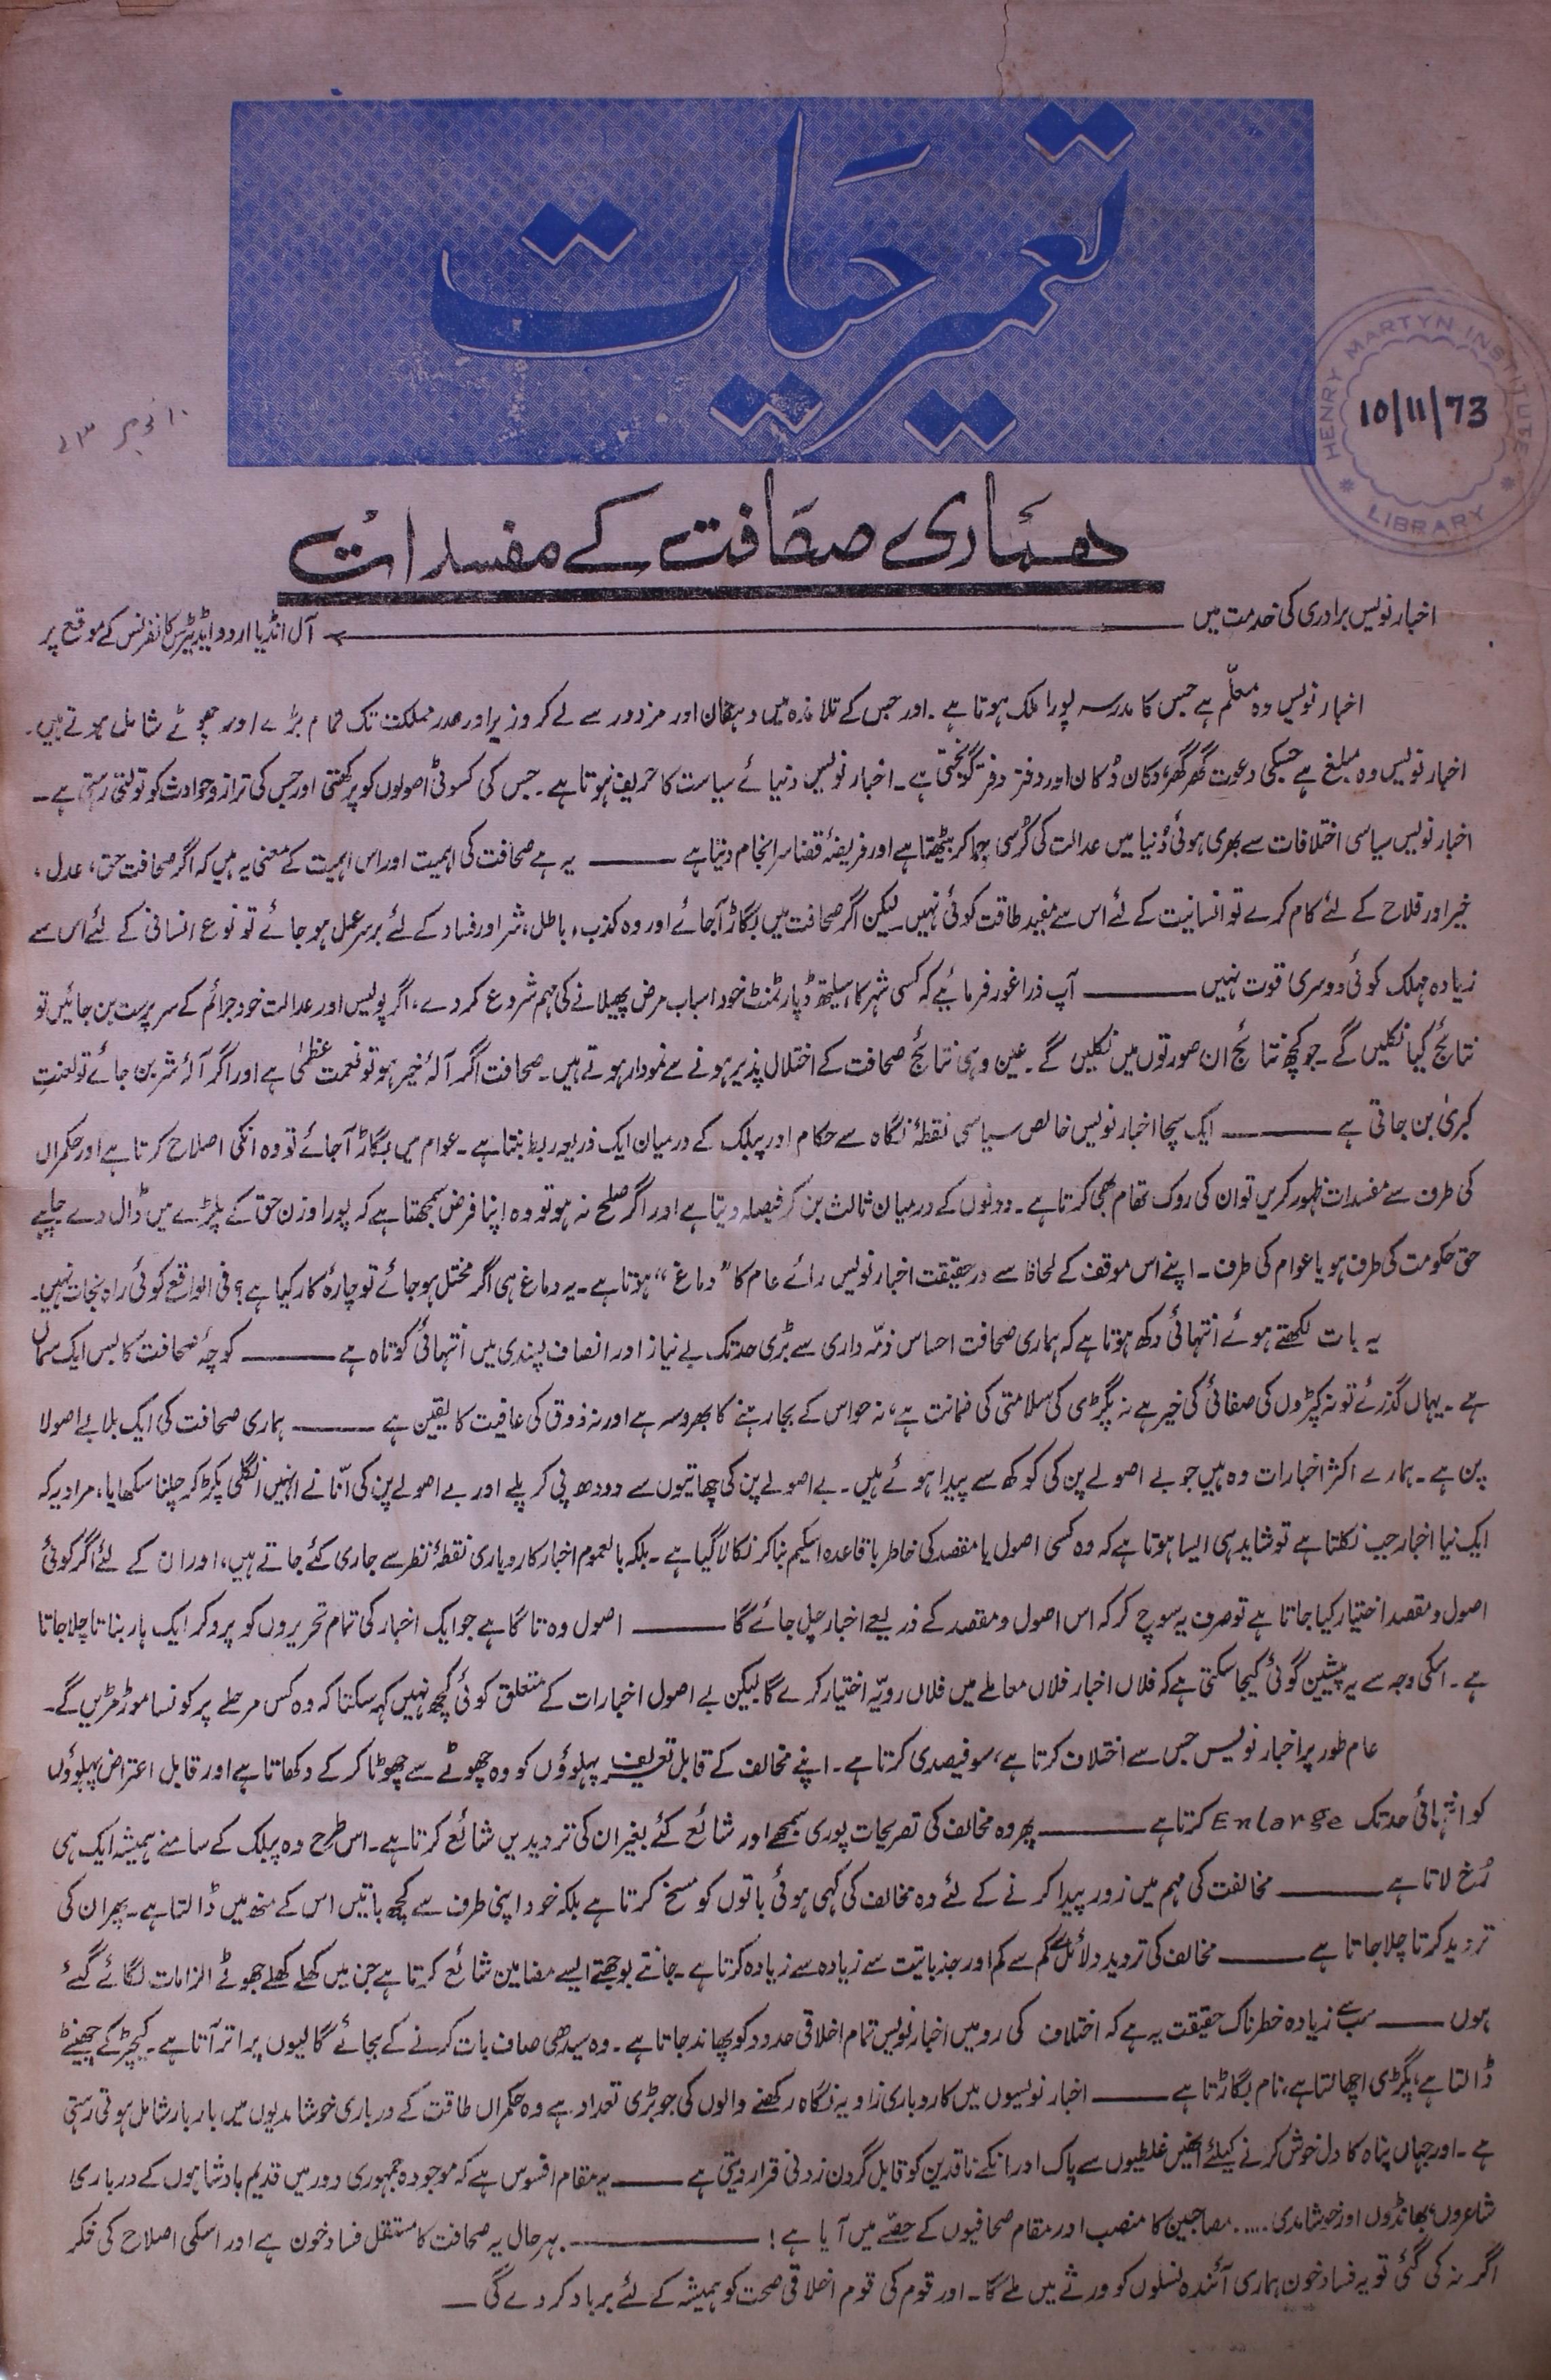 تعمیر حیات
HENRY MARTYN INSTITUTE
10/11/73
LIBRARY
۱۰ نومبر ۷۳ء
ہماری صحافت کے مفسدات
اخبار نویس برادری کی خدمت میں ——— آل انڈیا اردو ایڈیٹرس کانفرنس کے موقع پر
اخبار نویس وہ معلّم ہے جس کا مدرسہ پورا ملک ہوتا ہے۔ اور جس کے تلامذہ میں دہقان اور مزدور سے لے کر وزیر اور صدر مملکت تک تمام بڑے اور چھوٹے شامل ہوتے ہیں۔
اخبار نویس وہ مبلغ ہے جسکی دعوت گھر گھر، دکان دکان اور دفتر دفتر گونجتی ہے۔ اخبار نویس دنیائے سیاست کا حریف ہوتا ہے۔ جس کی کسوٹی اصولوں کو پرکھتی اور جس کی ترازو حوادث کو تولتی رہتی ہے۔
اخبار نویس سیاسی اختلافات سے بھری ہوئی دُنیا میں عدالت کی کُرسی بچھا کر بیٹھتا ہے اور فریضۂ قضا سر انجام دیتا ہے ——— یہ ہے صحافت کی اہمیت اور اس اہمیت کے معنی یہ ہیں کہ اگر صحافت حق، عدل،
خیر اور فلاح کے لئے کام کرے تو انسانیت کے لئے اس سے مفید طاقت کوئی نہیں۔ لیکن اگر صحافت میں بگاڑ آجائے اور وہ کذب، باطل، شر اور فساد کے لئے برسرعمل ہوجائے تو نوع انسانی کے لئے اس سے
زیادہ مہلک کوئی دوسری قوت نہیں ——— آپ ذرا غور فرمایئے کہ کسی شہر کا ہیلتھ ڈپارٹمنٹ خود اسباب مرض پھیلانے کی مہم شروع کردے، اگر پولیس اور عدالت خود جرائم کے سرپرست بن جائیں تو
نتائج کیا نکلیں گے۔ جو کچھ نتائج ان صورتوں میں نکلیں گے۔ عین وہی نتائج صحافت کے اختلال پذیر ہونے سے نمودار ہوتے ہیں۔ صحافت اگر آلۂ خیر ہو تو نعمت عظمیٰ ہے اور اگر آلۂ شر بن جائے تو لعنتِ
کبریٰ بن جاتی ہے ——— ایک سچا اخبار نویس خالص سیاسی نقطۂ نگاہ سے حکام اور پبلک کے درمیان ایک ذریعہ ربط بنتا ہے۔ عوام میں بگاڑ آجائے تو وہ انکی اصلاح کرتا ہے اور حکمراں
کی طرف سے مفسدات ظہور کریں تو ان کی روک تھام بھی کرتا ہے۔ دونوں کے درمیان ثالث بن کر فیصلہ دیتا ہے اور اگر صلح نہ ہو تو وہ اپنا فرض سمجھتا ہے کہ پورا وزن حق کے پلڑے میں ڈال دے چاہے
حق حکومت کی طرف ہو یا عوام کی طرف۔ اپنے اس موقف کے لحاظ سے درحقیقت اخبار نویس رائے عام کا "دماغ" ہوتا ہے۔ یہ دماغ ہی اگر مختل ہوجائے تو چارۂ کار کیا ہے؟ فی الواقع کوئی راہ نجات نہیں۔
یہ بات لکھتے ہوئے انتہائی دکھ ہوتا ہے کہ ہماری صحافت احساس ذمّہ داری سے بڑی حد تک بے نیاز اور انصاف پسندی میں انتہائی کوتاہ ہے ——— کوچۂ صحافت کا بس ایک سماں
ہے۔ یہاں گذرئے تو نہ کپڑوں کی صفائی کی خیر ہے نہ پگڑی کی سلامتی کی ضمانت ہے، نہ حواس کے بجا رہنے کا بھروسہ ہے اور نہ ذوق کی عافیت کا یقین ہے ——— ہماری صحافت کی ایک بلا بے اصولا
پن ہے۔ ہمارے اکثر اخبارات وہ ہیں جو بے اصولے پن کی کوکھ سے پیدا ہوئے ہیں۔ بے اصولے پن کی چھاتیوں سے دودھ پی کر پلے اور بے اصولے پن کی انّا نے انہیں انگلی پکڑ کر چلنا سکھایا، مراد یہ کہ
ایک نیا اخبار جب نکلتا ہے تو شاید ہی ایسا ہوتا ہے کہ وہ کسی اصول یا مقصد کی خاطر باقاعدہ اسکیم بنا کر نکالا گیا ہے۔ بلکہ بالعموم اخبار کاروباری نقطۂ نظر سے جاری کئے جاتے ہیں، اور ان کے لئے اگر کوئی
اصول و مقصد اختیار کیا جاتا ہے تو صرف یہ سوچ کر کہ اس اصول و مقصد کے ذریعے اخبار چل جائے گا ——— اصول وہ تاگا ہے جو ایک اخبار کی تمام تحریروں کو پرو کر ایک ہار بناتا چلا جاتا
ہے۔ اسکی وجہ سے یہ پیشین گوئی کیجاسکتی ہے کہ فلاں اخبار فلاں معاملے میں فلاں رویّہ اختیار کرے گا لیکن بے اصول اخبارات کے متعلق کوئی کچھ نہیں کہہ سکتا کہ وہ کس مرحلے پر کونسا موڑ مڑیں گے۔
عام طور پر اخبار نویس جس سے اختلاف کرتا ہے، سو فیصدی کرتا ہے۔ اپنے مخالف کے قابل تعریف پہلوؤں کو وہ چھوٹے سے چھوٹا کرکے دکھاتا ہے اور قابل اعتراض پہلوؤں
کو انتہائی حد تک Enlarge کرتا ہے ——— پھر وہ مخالف کی تصریحات پوری سمجھے اور شائع کئے بغیر ان کی تردیدیں شائع کرتا ہے۔ اس طرح وہ پبلک کے سامنے ہمیشہ ایک ہی
رُخ لاتا ہے ——— مخالفت کی مہم میں زور پیدا کرنے کے لئے وہ مخالف کی کہی ہوئی باتوں کو مسخ کرتا ہے بلکہ خود اپنی طرف سے کچھ باتیں اس کے منھ میں ڈالتا ہے۔ پھر ان کی
تردید کرتا چلا جاتا ہے ——— مخالف کی تردید دلائل سے کم سے کم اور جذباتیت سے زیادہ سے زیادہ کرتا ہے۔ جانتے بوجھتے ایسے مضامین شائع کرتا ہے جن میں کھلے کھلے جھوٹے الزامات لگائے گئے
ہوں ——— سب سے زیادہ خطرناک حقیقت یہ ہے کہ اختلاف کی رو میں اخبار نویس تمام اخلاقی حدود کو پھاند جاتا ہے۔ وہ سیدھی صاف بات کرنے کے بجائے گالیوں پر اتر آتا ہے۔ کیچڑ کے چھینٹے
ڈالتا ہے، پگڑی اچھالتا ہے، نام بگاڑتا ہے ——— اخبار نویسوں میں کاروباری زاویہ نگاہ رکھنے والوں کی جو بڑی تعداد ہے وہ حکمراں طاقت کے درباری خوشامدیوں میں بار بار شامل ہوتی رہتی
ہے۔ اور جہاں پناہ کا دل خوش کرنے کیلئے انھیں غلطیوں سے پاک اور انکے ناقدین کو قابل گردن زدنی قرار دیتی ہے ——— یہ مقام افسوس ہے کہ موجودہ جمہوری دور میں قدیم بادشاہوں کے درباری
شاعروں، بھانڈوں اور خوشامدی ..... مصاحبین کا منصب اور مقام صحافیوں کے حصّے میں آیا ہے! ——— بہر حال یہ صحافت کا مستقل فساد خون ہے اور اسکی اصلاح کی فکر
اگر نہ کی گئی تو یہ فساد خون ہماری آئندہ نسلوں کو ورثے میں ملے گا۔ اور قوم کی قوم اخلاقی صحت کو ہمیشہ کے لئے برباد کردے گی۔